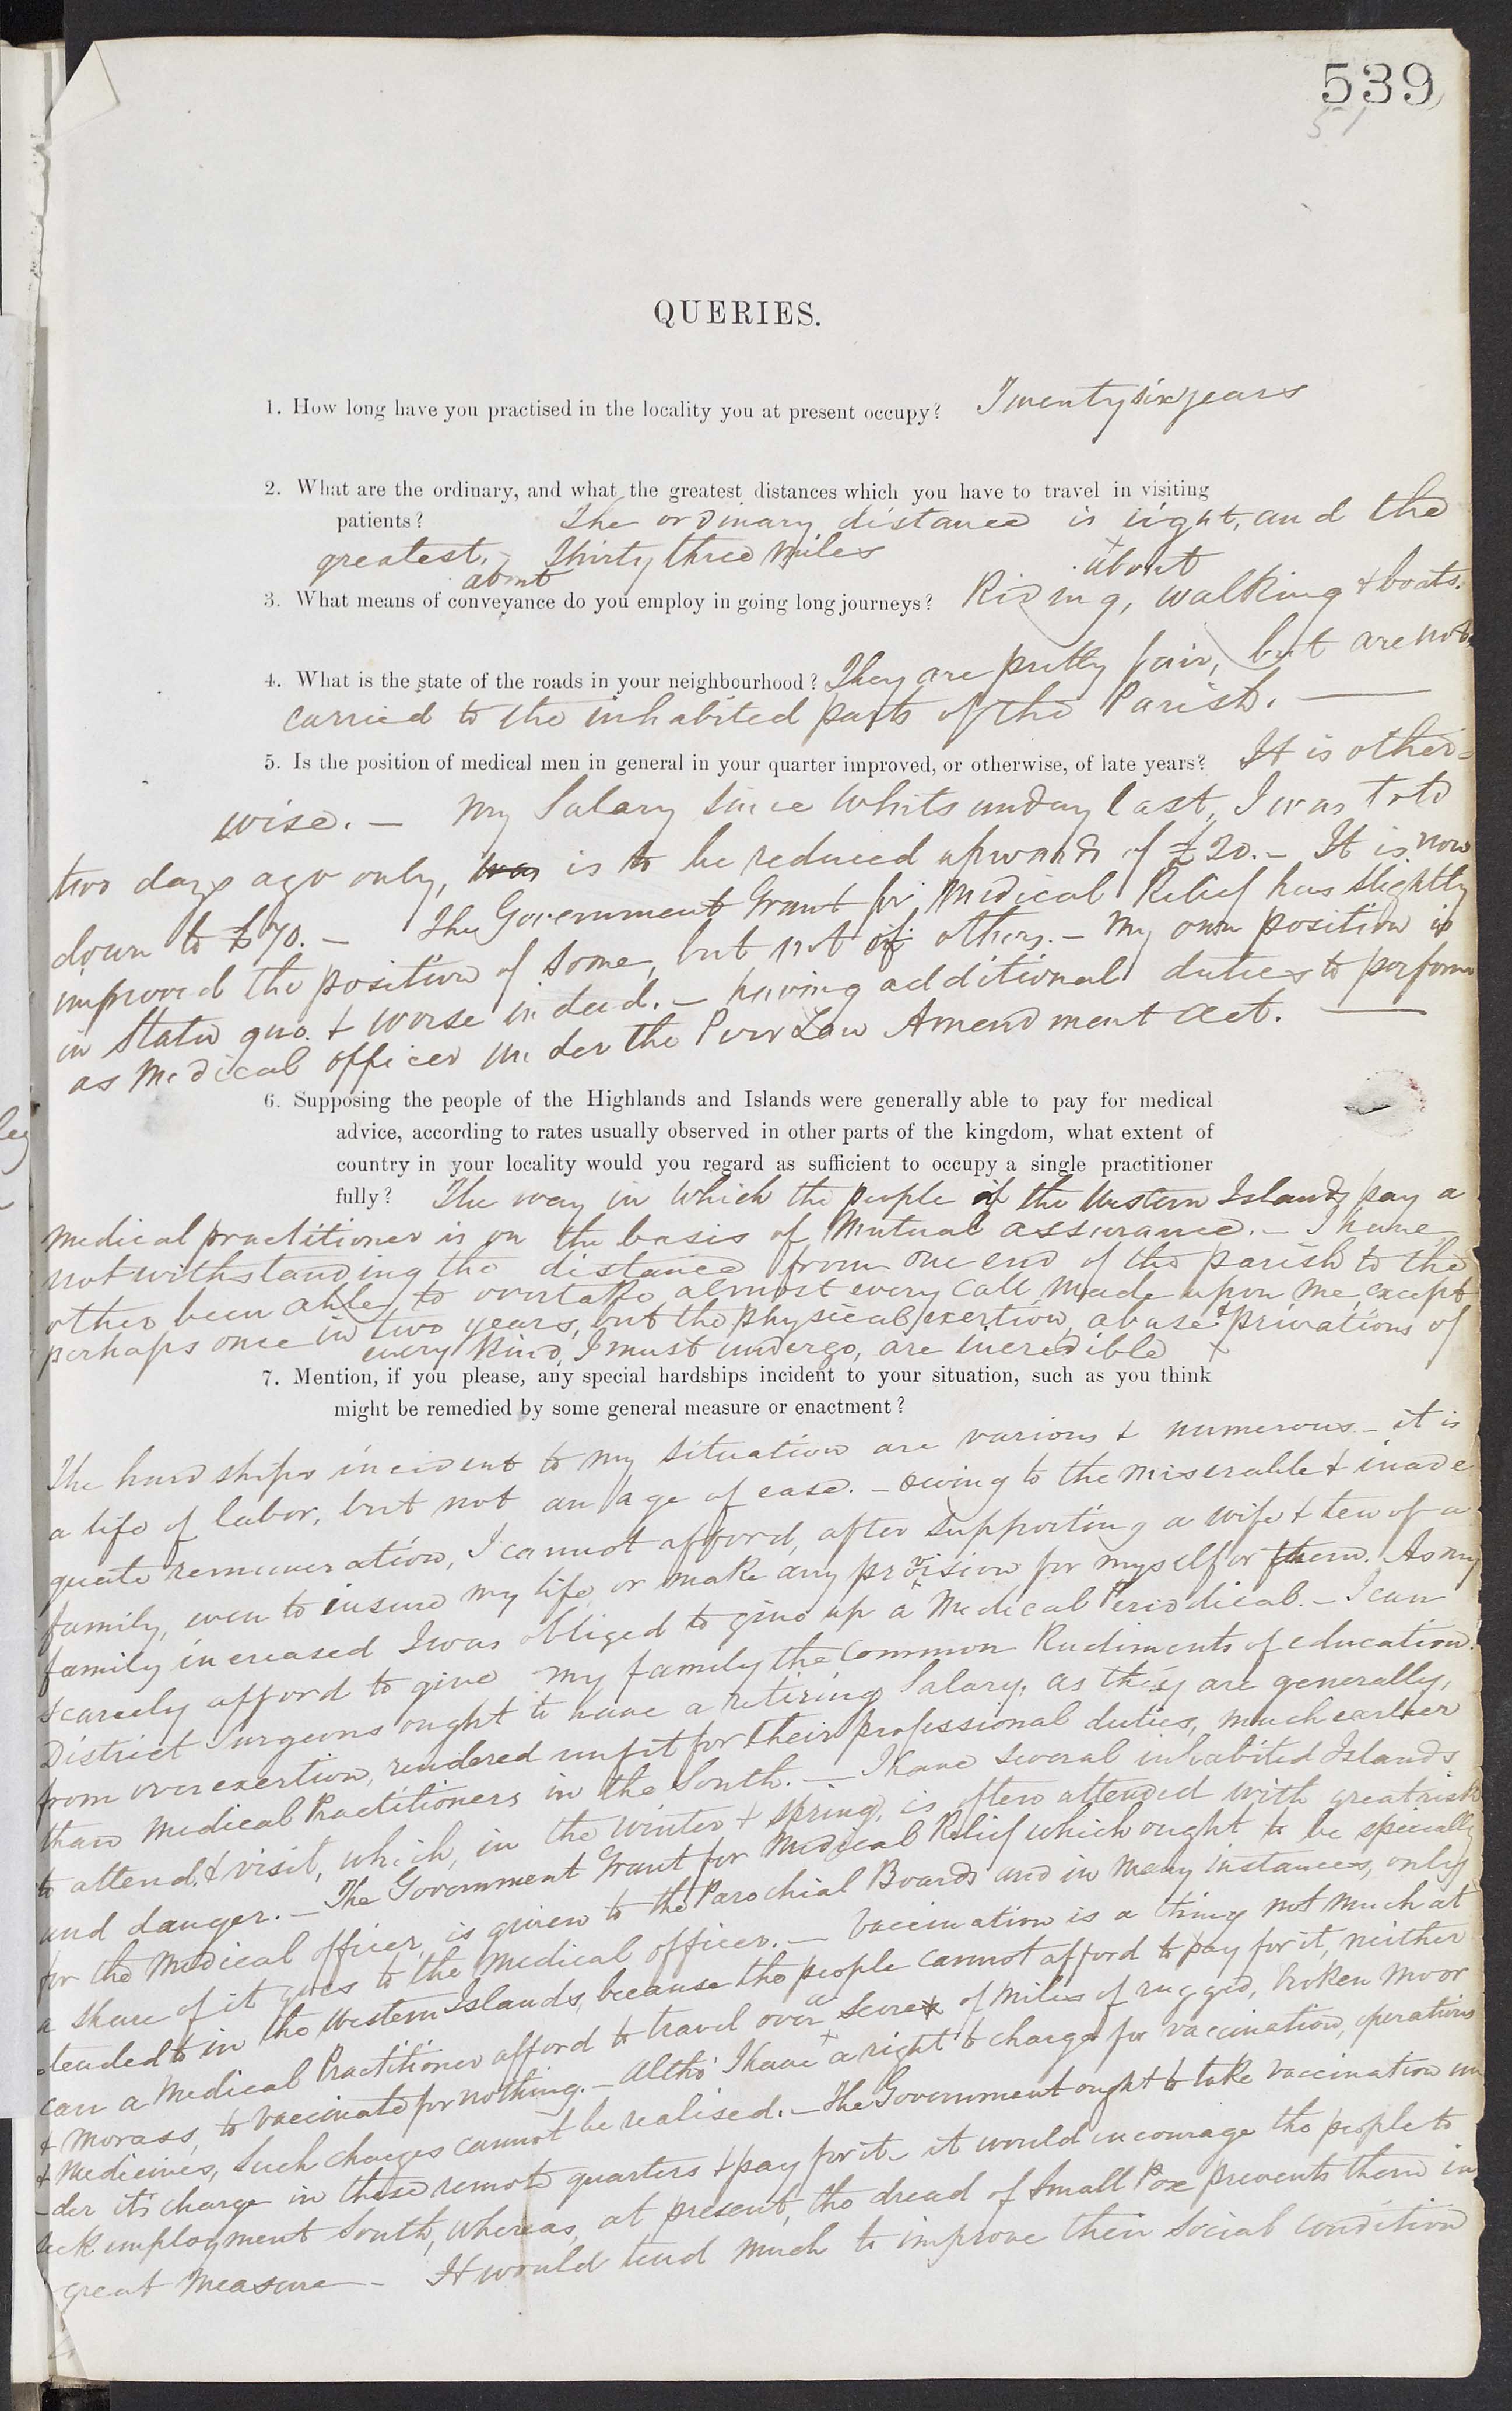 539
51
QUERIES.
1. How long have you practised in the locality you at present occupy? Twenty six years
2. What are the ordinary, and what the greatest distances which you have to travel in visiting
patients? The ordinary distance is eight, and the
greatest, - Thirty three miles about
about
3. What means of conveyance do you employ in going long journeys? Riding, walking & boats.
4. What is the state of the roads in your neighbourhood? They are pretty fair, but are not
carried to the inhabited parts of the Parish. —
5. Is the position of medical men in general in your quarter improved, or otherwise, of late years? It is other=
wise. — My Salary since Whitsunday last, I was told
two days ago only, was is to be reduced upwards of £20. - It is now
down to £70. — The Government Grant for Medical Relief has slightly
improved the position of some, but not of others. - My own position is
in Statu quo. & worse indeed. - having additional duties to perform
as Medical officer under the Poor Law Amendment Act. —
6. Supposing the people of the Highlands and Islands were generally able to pay for medical
advice, according to rates usually observed in other parts of the kingdom, what extent of
country in your locality would you regard as sufficient to occupy a single practitioner
fully? The way in which the people of the Western Islands pay a
medical practitioner is on the basis of Mutual assurance. - I have
notwithstanding the distance from one end of the parish to the
other been able to overtake almost every call made upon me, except
perhaps once in two years, but the physical exertion, abuse & privations of
every kind, I must undergo, are incredible
7. Mention, if you please, any special hardships incident to your situation, such as you think
might be remedied by some general measure or enactment?
The hardships incident to my situation are various & numerous - it is
a life of labor, but not an age of ease. - owing to the miserable & inade
quate remuneration, I cannot afford, after supporting a wife & ten of a
family, even to insure my life, or make any provision for myself or them. As my
family increased I was obliged to give up a Medical Periodical. - I can
scarcely afford to give my family the common Rudiments of education.
District Surgeons ought to have a retiring Salary, as they are generally,
from over exertion, rendered unfit for their professional duties, much earlier
than Medical Practitioners in the South. — I have several inhabited Islands
to attend, & visit, which, in the winter & spring, is often attended with great risk
and danger. - The Government Grant for Medical Relief which ought to be specially
for the Medical officer, is given to the Parochial Boards and in many instances, only
a share of it goes to the medical officer. — Vaccination is a thing not much at
tended to in the Western Islands, because the people cannot afford to pay for it, neither
can a Medical Practitioner afford to travel over a score of miles of rugged, broken moor
& morass, to vaccinate for nothing. - Altho' I have a right to charge for vaccination, operations
& Medicines, such charges cannot be realised. - The Government ought to take vaccination un
-der its charge in these remote quarters & pay for it - it would encourage the people to
seek employment South, whereas, at present, the dread of Small Pox prevents them in
great measure - It would tend much to improve their social condition